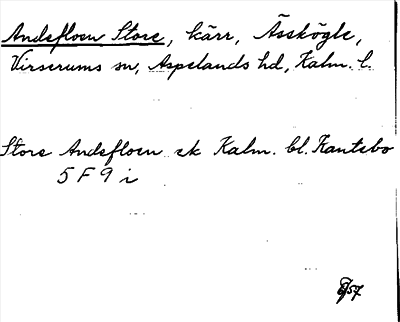 Andefloen Store, kärr, Ässkögle,
Virserums sn, Aspelands hd, Kalm. l.
Store Andefloen ek Kalm. bl. Kantebo
5 F 9 i